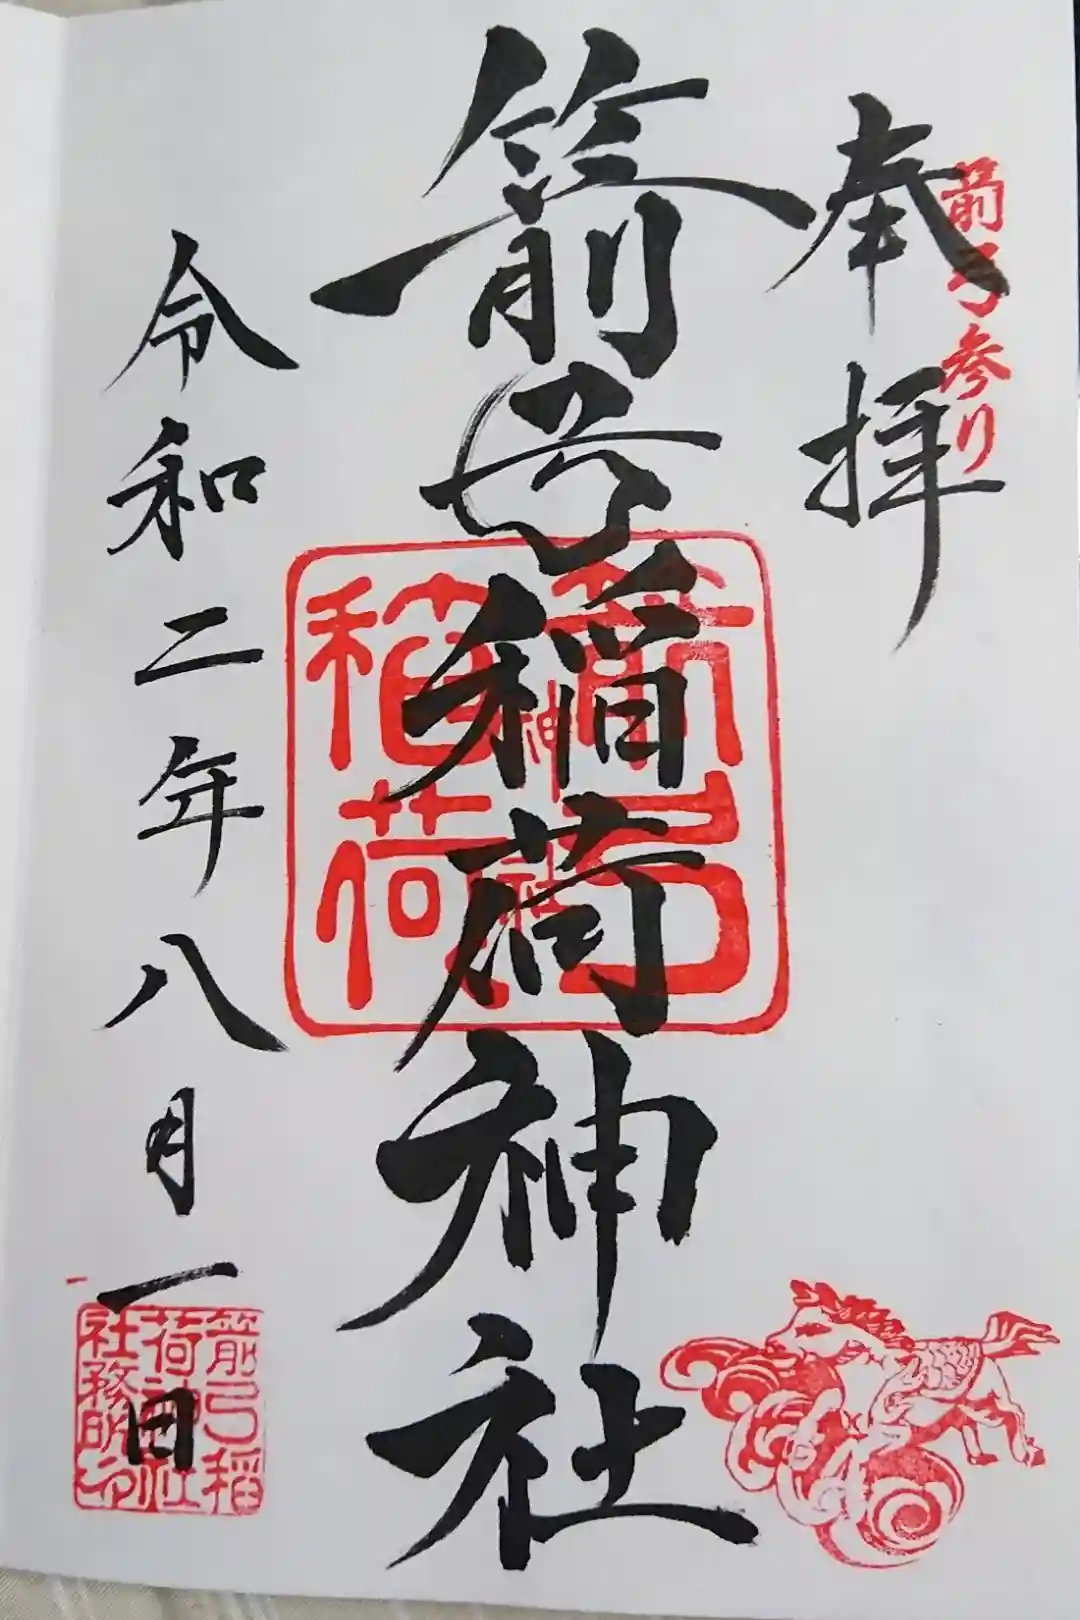 奉拝
箭弓参り
箭弓稲荷神社
箭弓
稲荷
神社
令和二年八月一日
箭弓稲
荷神社
社務所印